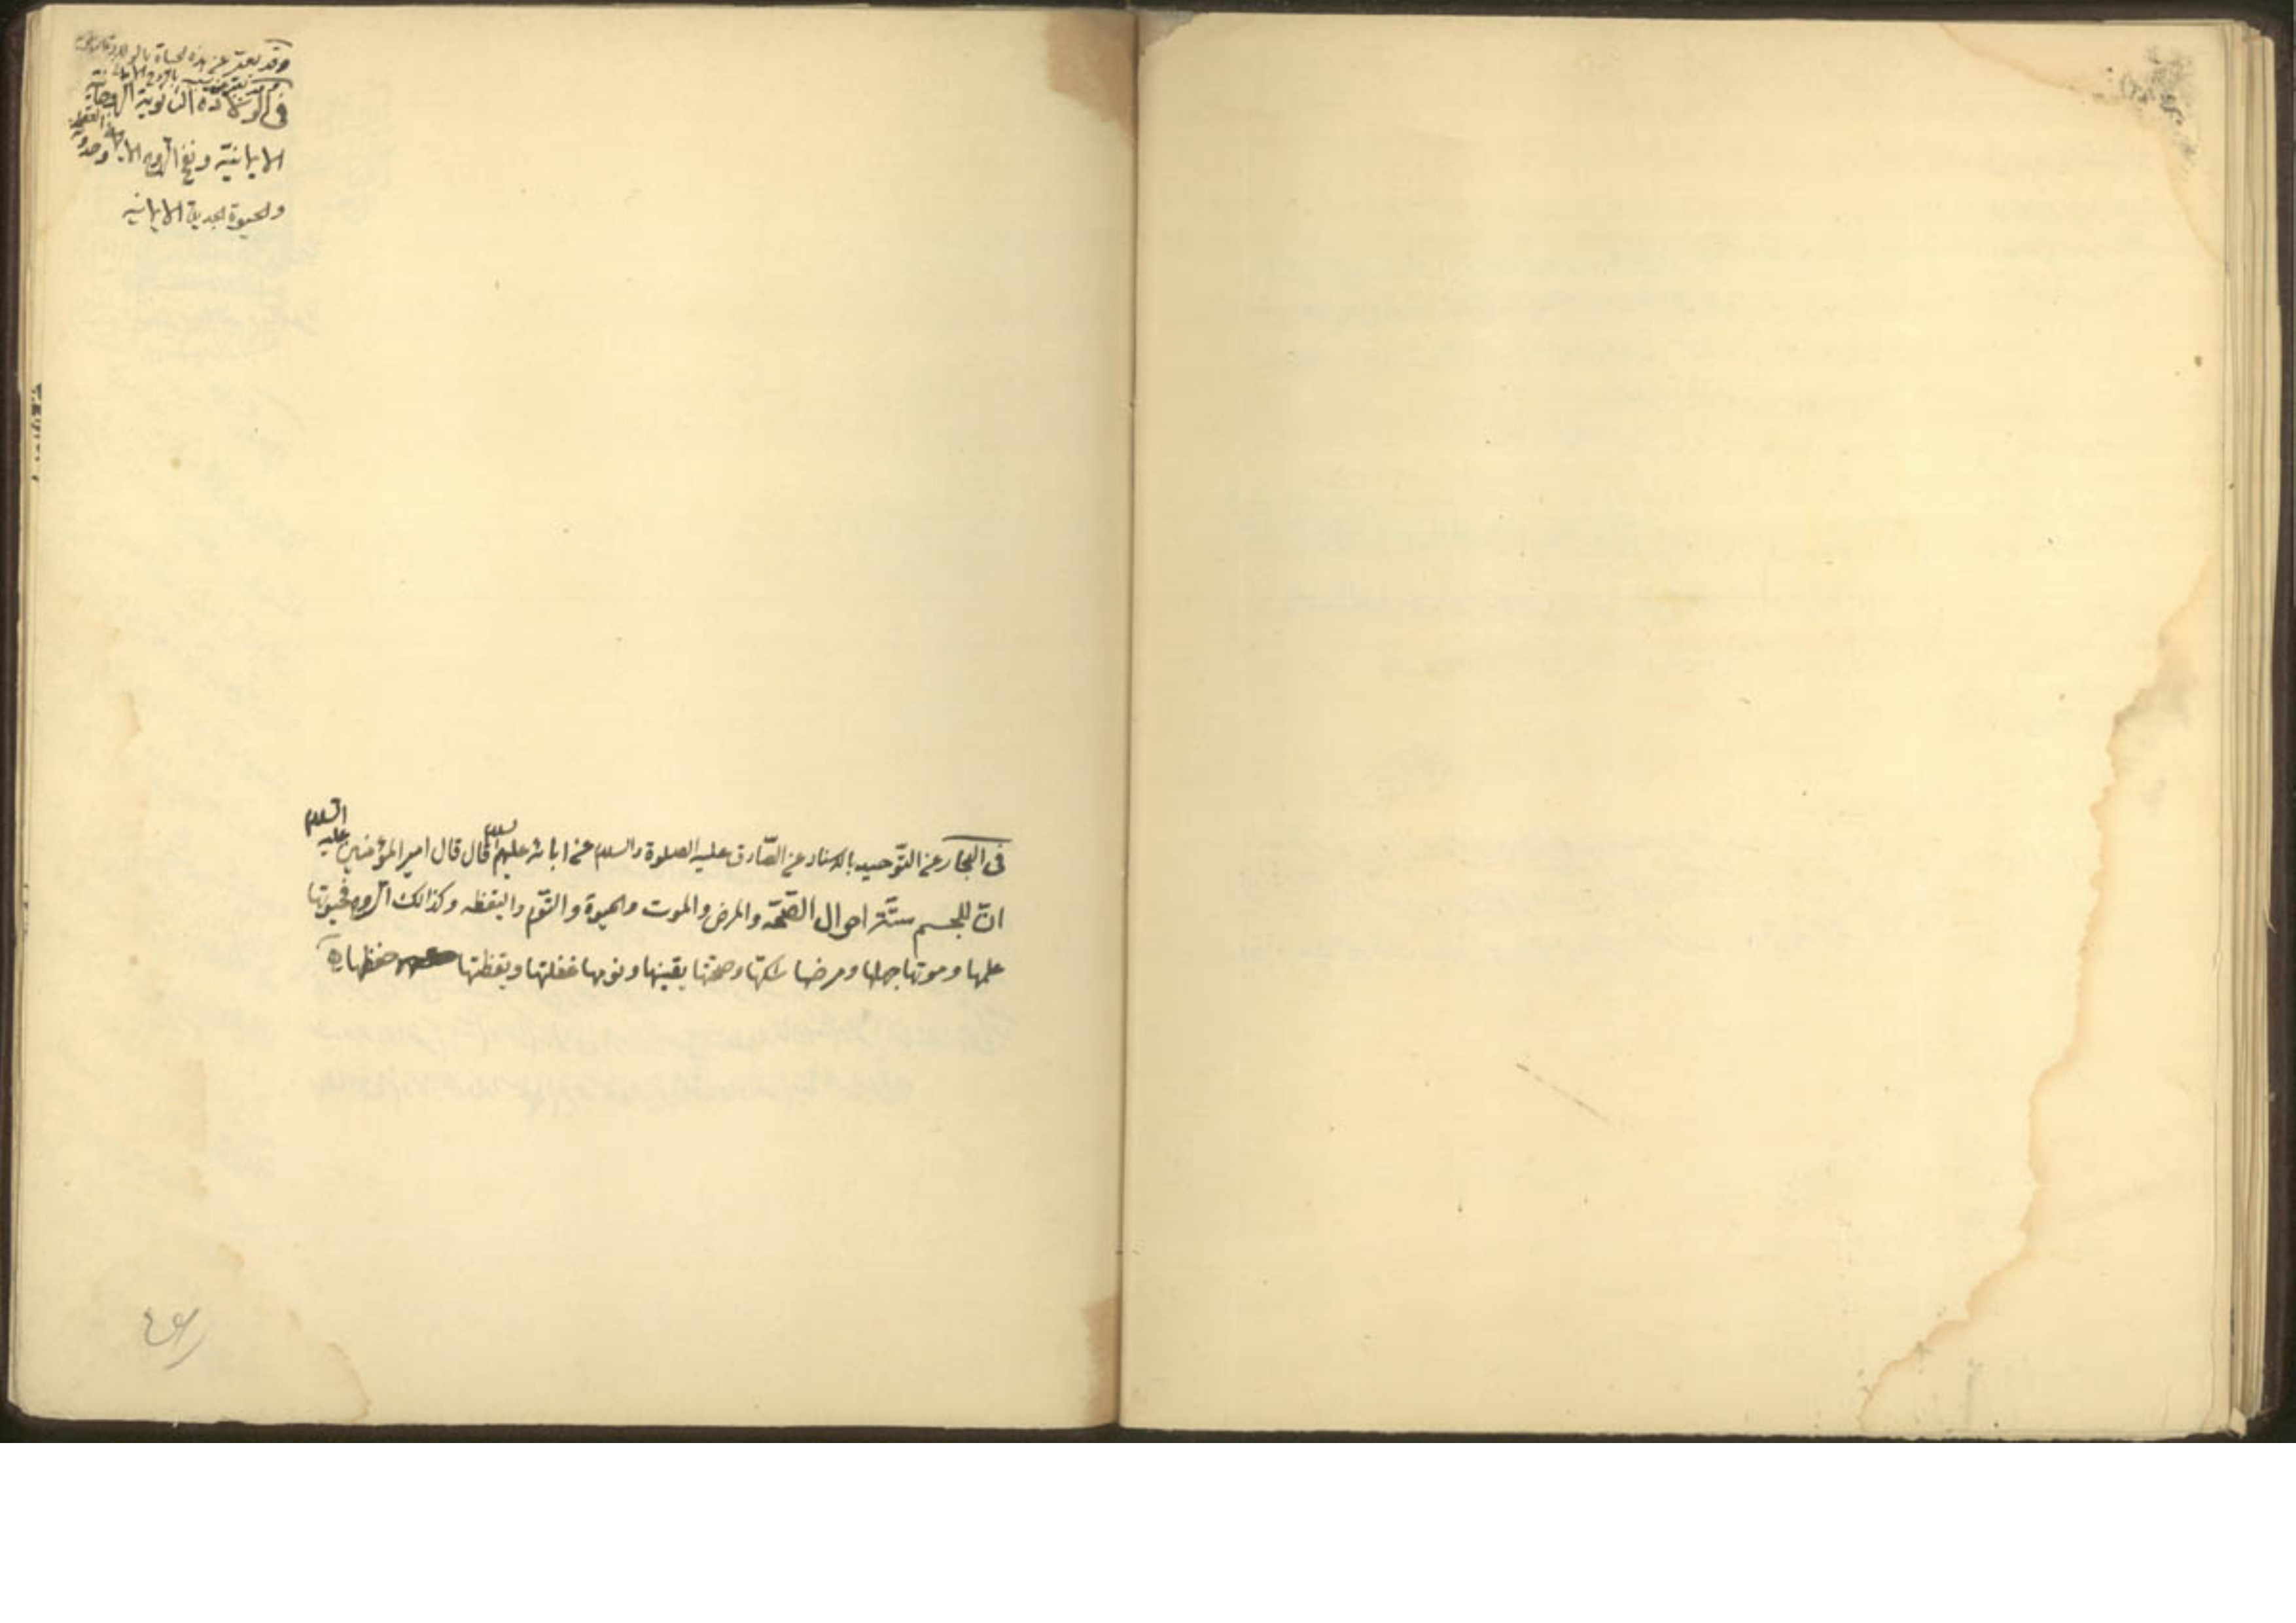 وقد يعبّر عن هذه الحياة بالولادة
فى الولادة الثانوية الروحانية
الايمانيّة ونفخ الروح الايمانى وحدوث
والحيوة الجديدة الايمانيه
فى البحار عن التوّحيد بالاسناد عن الصّادق عليه الصلوة والسلام عن ابائه عليهم السلام قال قال امير المؤمنين عليه السلام
انّ للجسم ستّة احوال الصّحّة والمرض والموت والحيوة والنّوم واليقظه وكذالك الروح فحيوتها
علمها وموتها جهلها ومرضها شكّها وصحّتها يقينها ونومها غفلتها ويقظتها حفظها